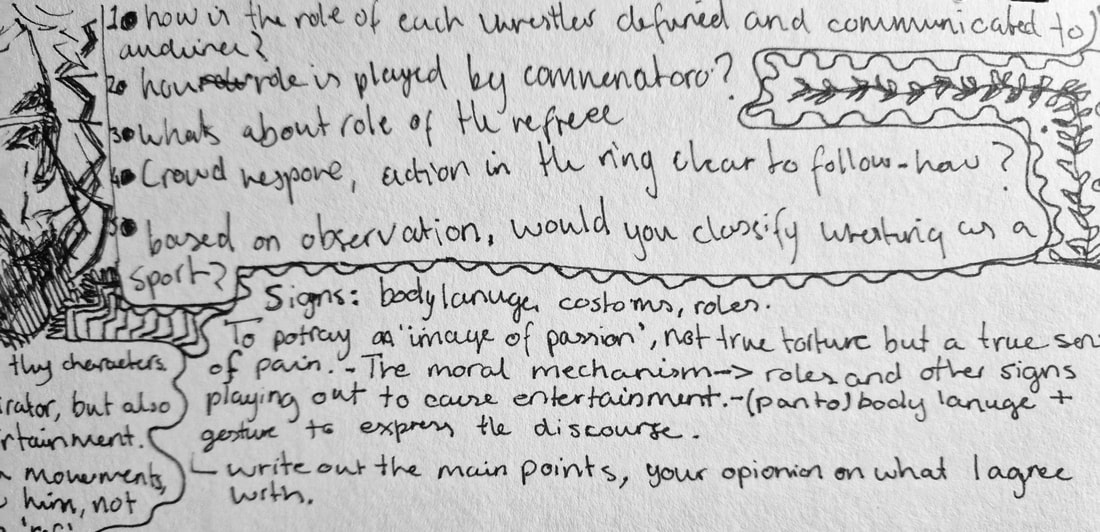 1. how is the role of each wrestler defined and communicated to
audience?
2. how role is played by commenatoro?
3. whats about role of the refreee
4. Crowd respone, action in the ring clear to follow-how?
5. based on observation, would you classify wresturiq as a
sport?
Signs: body lanuge, costoms, roles.
To potray an 'image of passion', not true torture but a true sen
of pain. - The moral mechanism --> roles and other signs
playing out to cause entertainment. - (panto) body lanuge +
gesture to express the discourse.
write out the main points, your opionion on what I agree
with.
thy characters.
rator, but also
rtainment.
monuments,
him, not